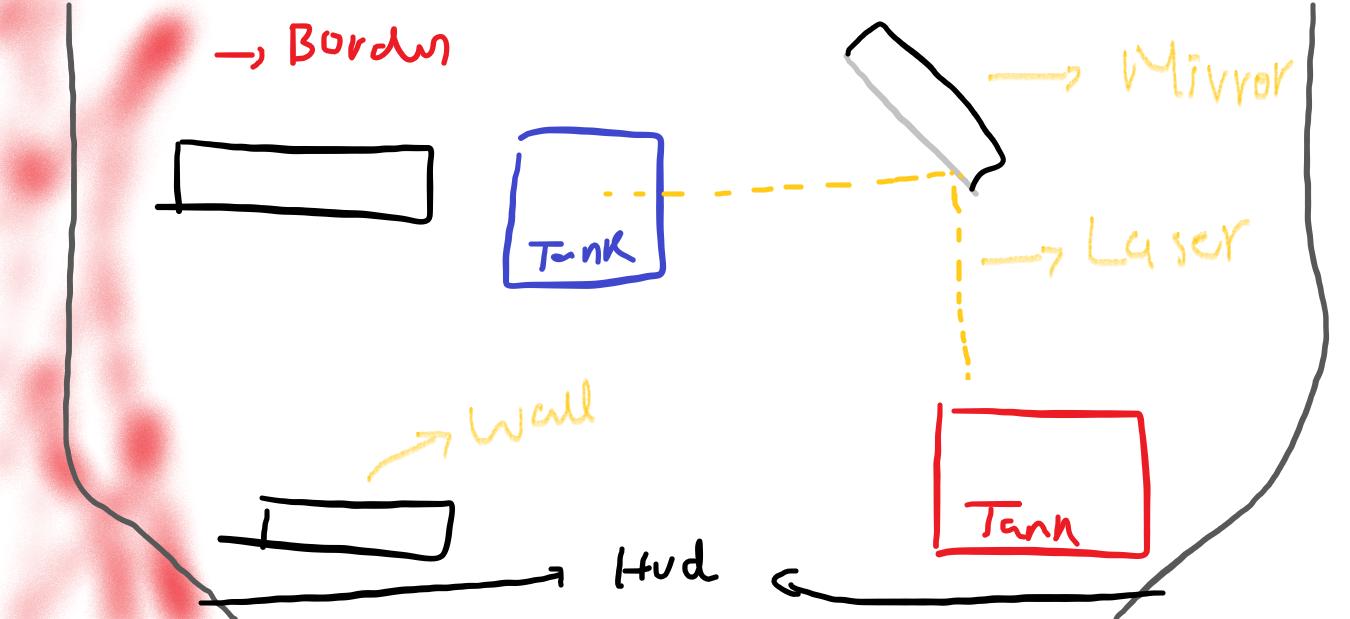 Border
Mirror
Tank
Laser
Wall
Tank
Hud